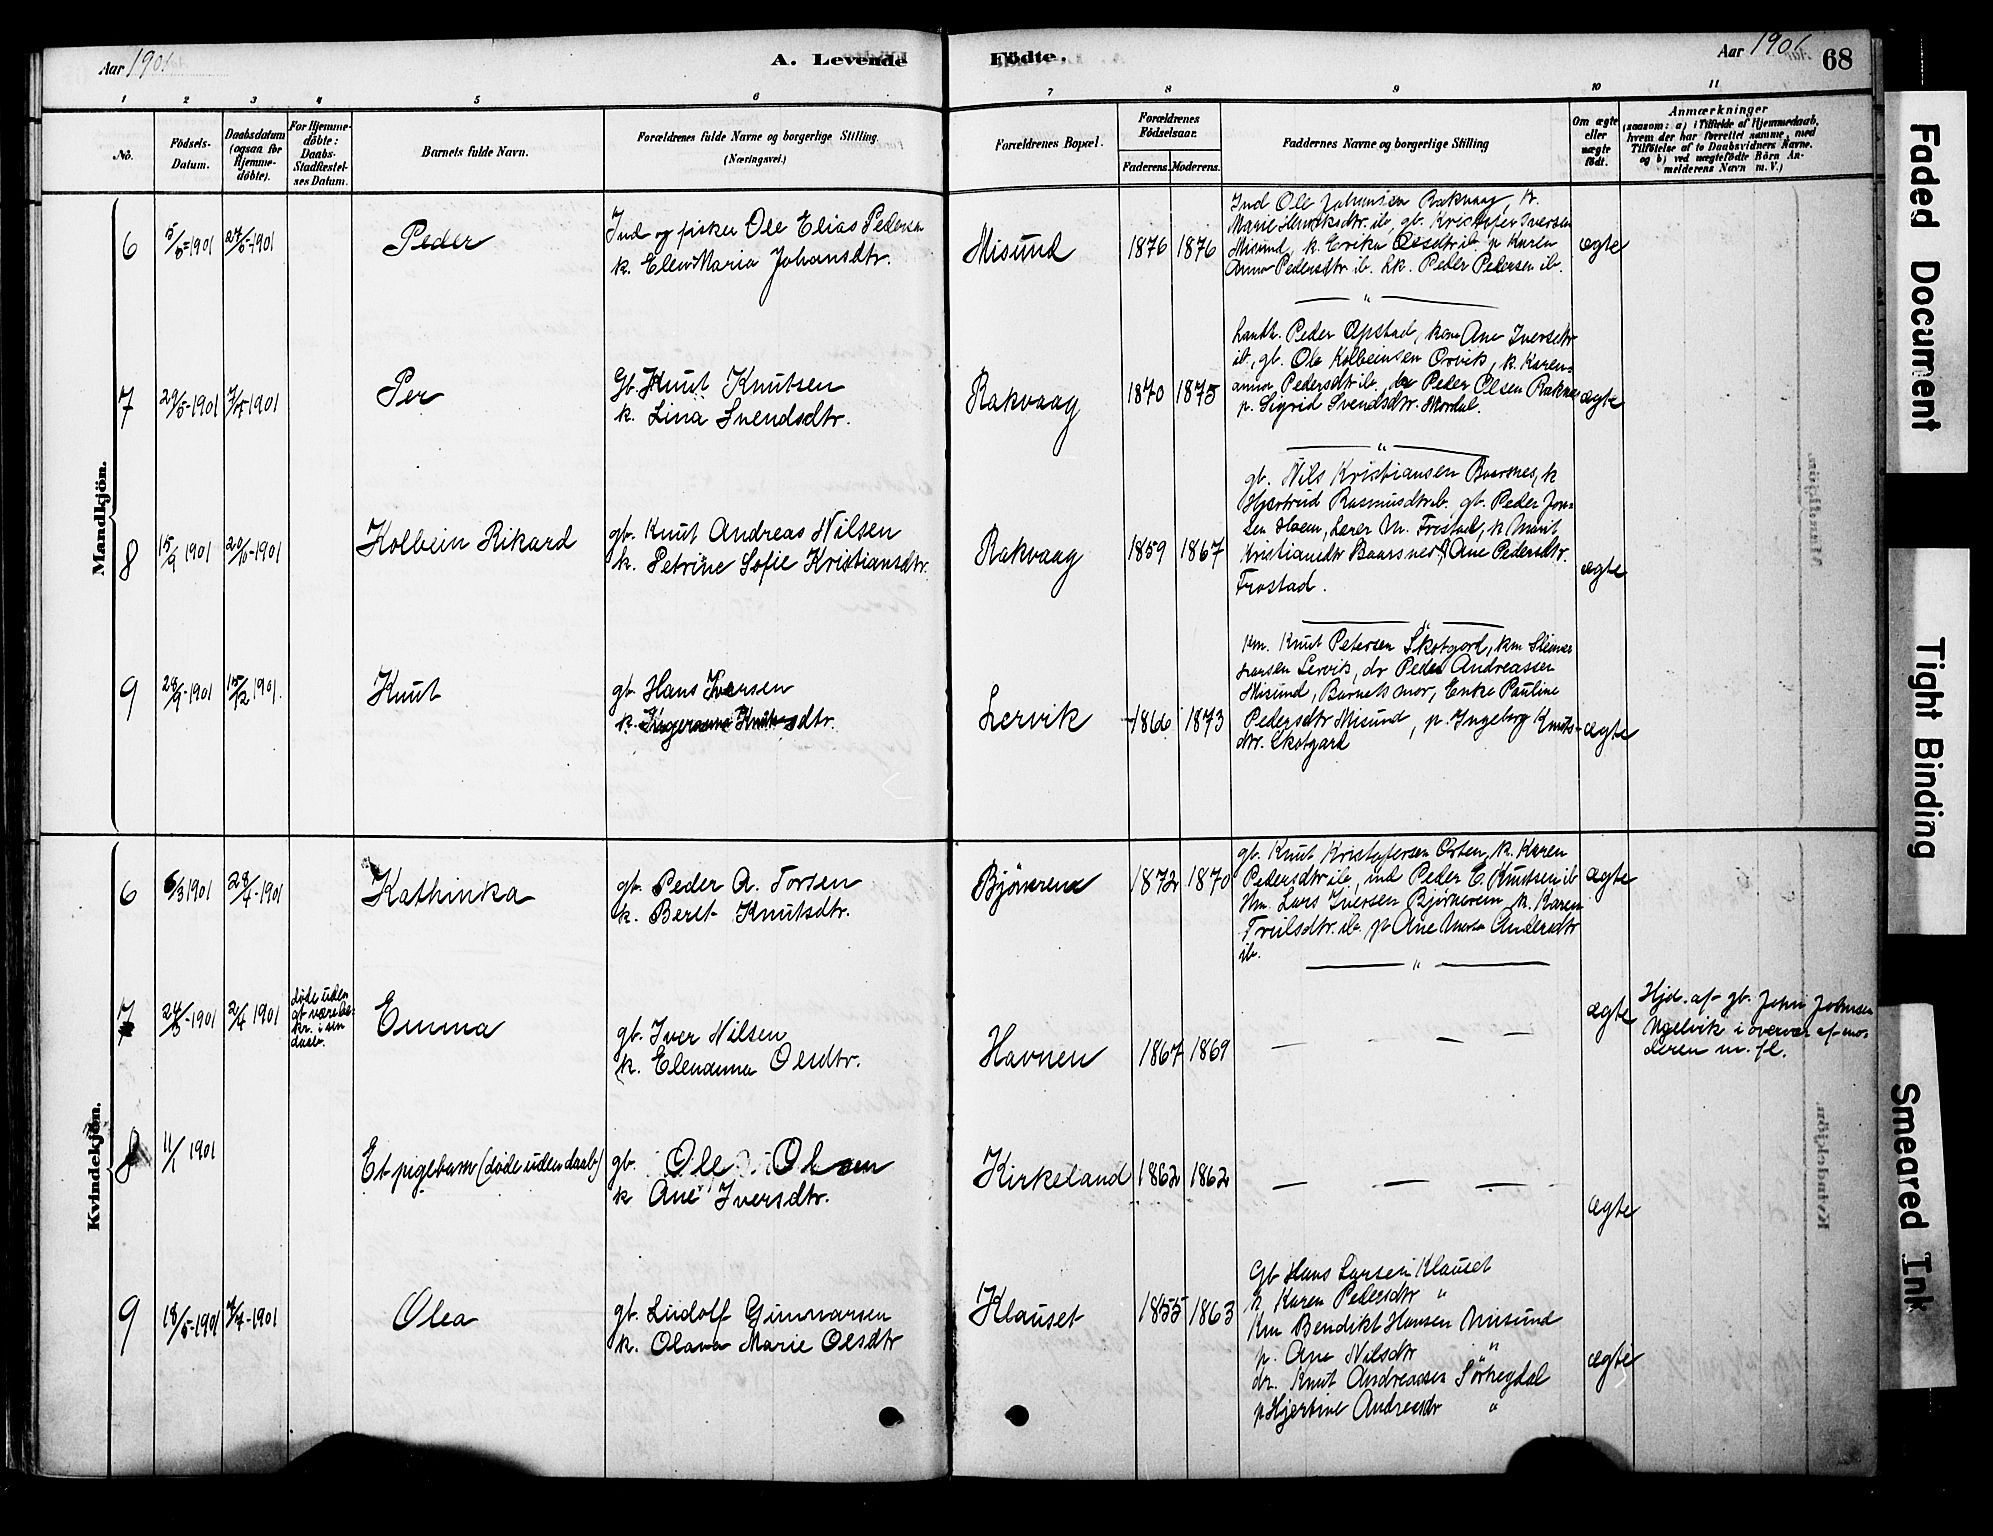 Aar 1901
A. Levende
Födte.
Aar 1901
68
1 2 3 4 5 6 7 8 9 10 11
No.
Födsels-
Datum.
Daabsdatum
(ogsaa för
Hjemme-
döbte).
For Hjemme-
döbte:
Daabs-
Stadfæstel-
ses Datum.
Barnets fulde Navn.
Forældrenes fulde Navne og borgerlige Stilling
(Næringsvei.)
Forældrenes Bopæl.
Forældrenes
Födselsaar.
Faderens. Moderens.
Faddernes Navne og borgerlige Stilling
Om ægte
eller
uægte
födt.
Anmærkninger
(saasom: a) i Tilfælde af Hjemmedaab,
hvem der har forrettet samme, med
Tilföielse af to Daabsvidners Navne.
og b) ved uægtefödte Börn An-
melderens Navn m. V.)
Mandkjön.
6 5/5-1901 27/5-1901
Peder
Ind og fisker Ole Elias Pedersen
k. Elen Maria Johansdtr.
Misund 1876 1876
Ind Ole Johansen Rakvaag, k.
Marie Henriksdtr. ib, gb. Kristofer Iversen
Misund, k. Erika Olesdtr ib, p Karen
Anna Pedersdtr ib. Peder Pedersen ib.
ægte
7 29/5-1901 7/7 1901
Per
Gb. Knut Knutsen
k. Lina Svendsdtr.
Rakvaag 1870 1875
Landh. Peder Opstad, kone Ane Iversdtr
ib, gb. Ole Kolbeinsen Orvik, k. Karen-
anna Pedersdtr ib. dr Peder Olsen Rakvaag
p. Sigrid Svendsdtr. Mordal.
ægte
8 15/9 1901 20/10-1901
Kolbein Rikard
gb. Knut Andreas Nilsen
k. Petrine Sofie Kristiansdtr.
Rakvaag 1859 1867
gb. Nils Kristiansen Baarsnes, k
Hjertrud Rasmusdtr ib. gb. Peder Jon-
sen Hoem, Lærer M. Frostad, k Marit
Kristiansdtr Baarsnes, Ane Pedersdtr.
Frostad.
ægte
9 28/9-1901 15/12 1901.
Knut
gb. Hans Iversen
k. Ingeranna Knutsdtr.
Lervik 1866 1873
km. Knut Petersen Skotgard, km Steinar
Hansen Lervik, dr Peder Andreassen
Misund, Barnets mor, Enke Pauline
Pedersdtr Misund, p. Ingeborg Knuts-
dtr. Skotgard
ægte
Kvindekjön.
6 6/3 1901 28/4-1901
Kathinka
gb. Peder A. Torsen
k. Beret Knutsdtr.
Bjørnerem 1872 1870
gb. Knut Kristofersen Orten, k. Karen
Pedersdtr ib, ind Peder E. Knutsen ib
Nm. Lars Iversen Bjørnerem, k. Karen
Trulsdtr. ib. p Ane Marta Andersdtr
ib.
ægte
7 24/3-1901 2/4 1901
døde uden
at være be-
kr. i sin
daab.
Emma
gb. Iver Nilsen
k. Elenanna Olsdtr.
Havnen 1867 1869
ægte
Hjd. af gb. John Johnsen
Magelvik i overvær af mo-
deren m. fl.
8 11/1 1901
Et pigebarn (døde uden daab)
gb. Ole Olsen
k Ane Iversdtr.
Kirkeland 1862 1862
ægte
9 18/5-1901 7/7-1901
Olea
gb. Ludolf Gunnarsen
k. Olava Marie Olsdtr
Klauset 1855 1863
Gb Hans Larsen Klauset
k Karen Pedersdtr "
Km Bendikt Hansen Misund
p. Ane Nilsdtr "
dr. Knut Andreassen Sørhegdal
p Hjertine Andreasdr "
ægte
Faded Document
Tight Binding
Smeared Ink